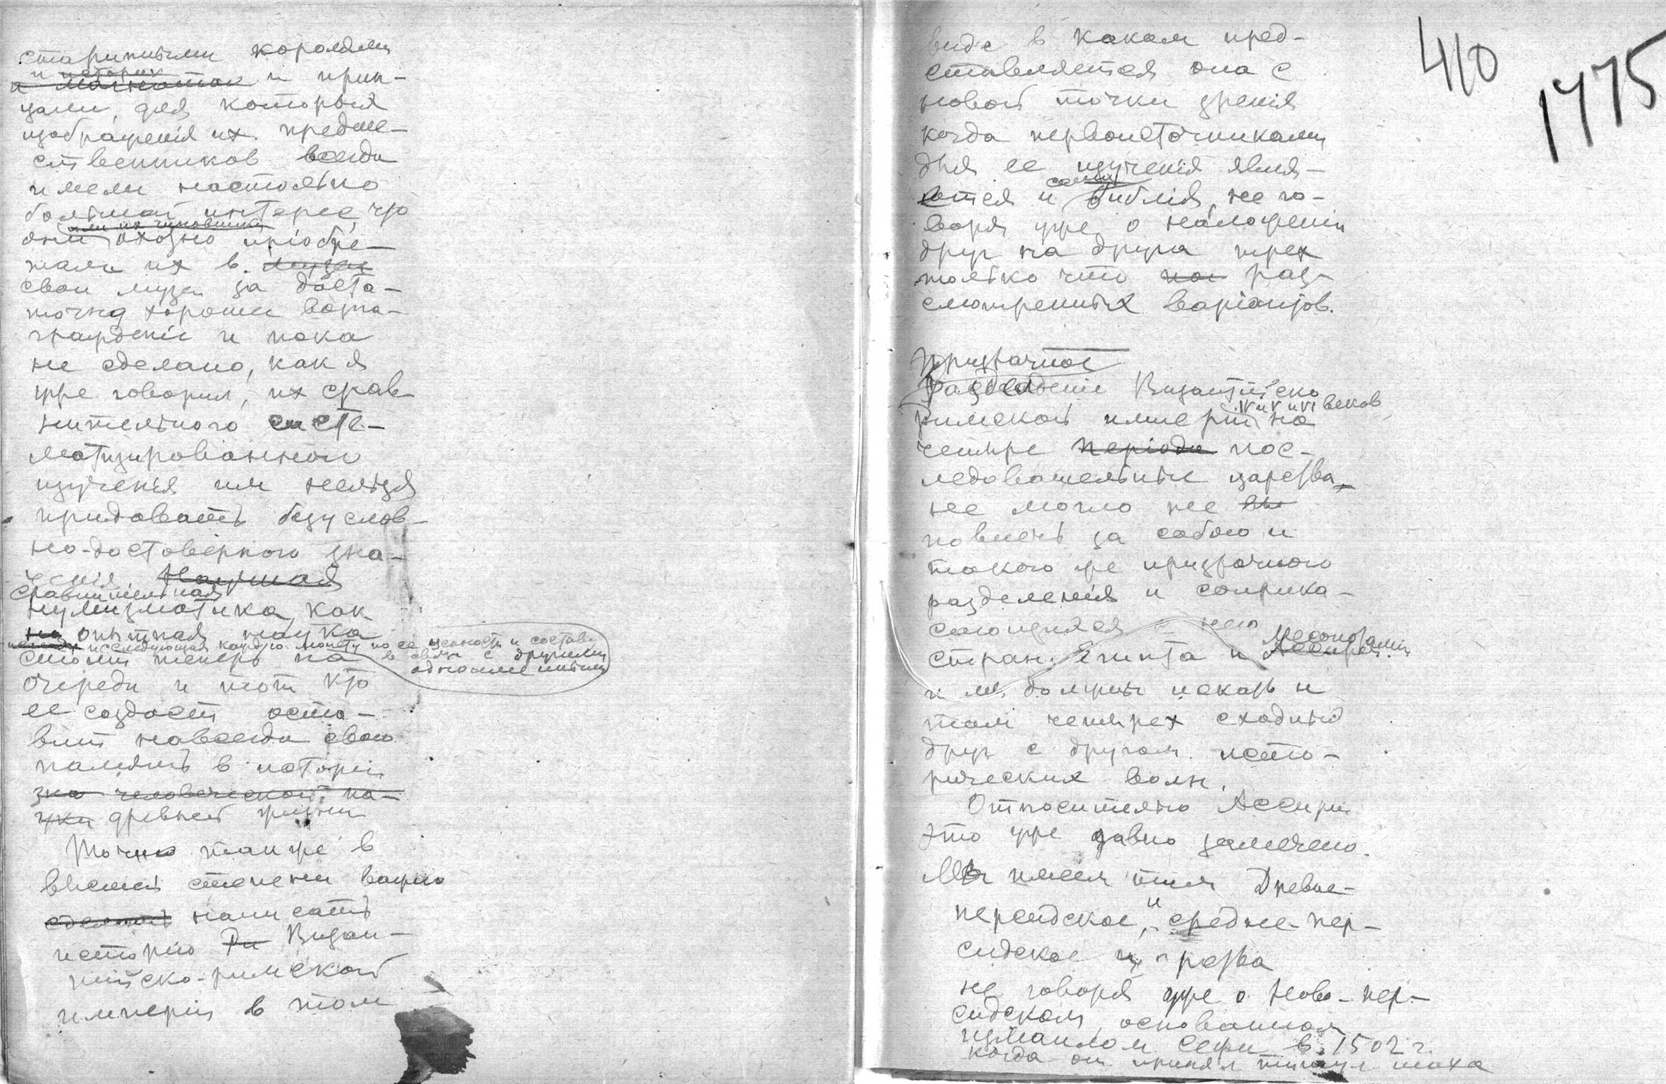 старинными королями
и принцами
цами, для которых
изображенія их предше-
ственников всегда
имели настолько
большой интерес, что
они охотно пріобре-
тали их в музеи
свои музеи за доста-
точно хорошее возна-
гражденіе и пока
не сделано, как я
уже говорил, их срав-
нительного систе-
матизированного
изученія им нельзя
придавать безуслов-
но-достоверного зна-
ченія. Научная
Сравнительная
нумизматика, как
на опытная наука
исследующая каждую монету по ее ценности и составу
в связи с другими
одноименными
стоит теперь на
очереди и тот кто
ее создаст оста-
вит навсегда свою
память в исторіи
человеческой на-
уки древней жизни
Точно также в
высшей степени важно
сделать написать
исторію Ри Визан-
тійско-римской
имперіи в том
410
1775
виде в каком пред-
ставляется она с
новой точки зренія
когда первоисточниками
для ее изученія явля-
ются и сама Библія, не го-
воря уже о наложеніи
друг на друга трех
только что раз-
смотренных варіантов.
Призрачное
разделеніе Византійско
Римской имперіи на
IV и V и VI веков
четыре періода пос-
ледовательныя царства,
не могло не вы
повлечь за собою и
такого же призрачного
разделенія и соприка-
сающихся с нею
стран: Египта и Месопотаміи
и мы должны искать и
там четырех сходных
друг с другом исто-
рических волн.
Относительно Ассиріи
это уже давно замечено.
Мы имеем там Древне-
персидское, и средне-пер-
сидское царства
не говоря уже о Ново-пер-
сидском, основанном
Измаилом Сефи в 1502 г.
когда он принял титул шаха